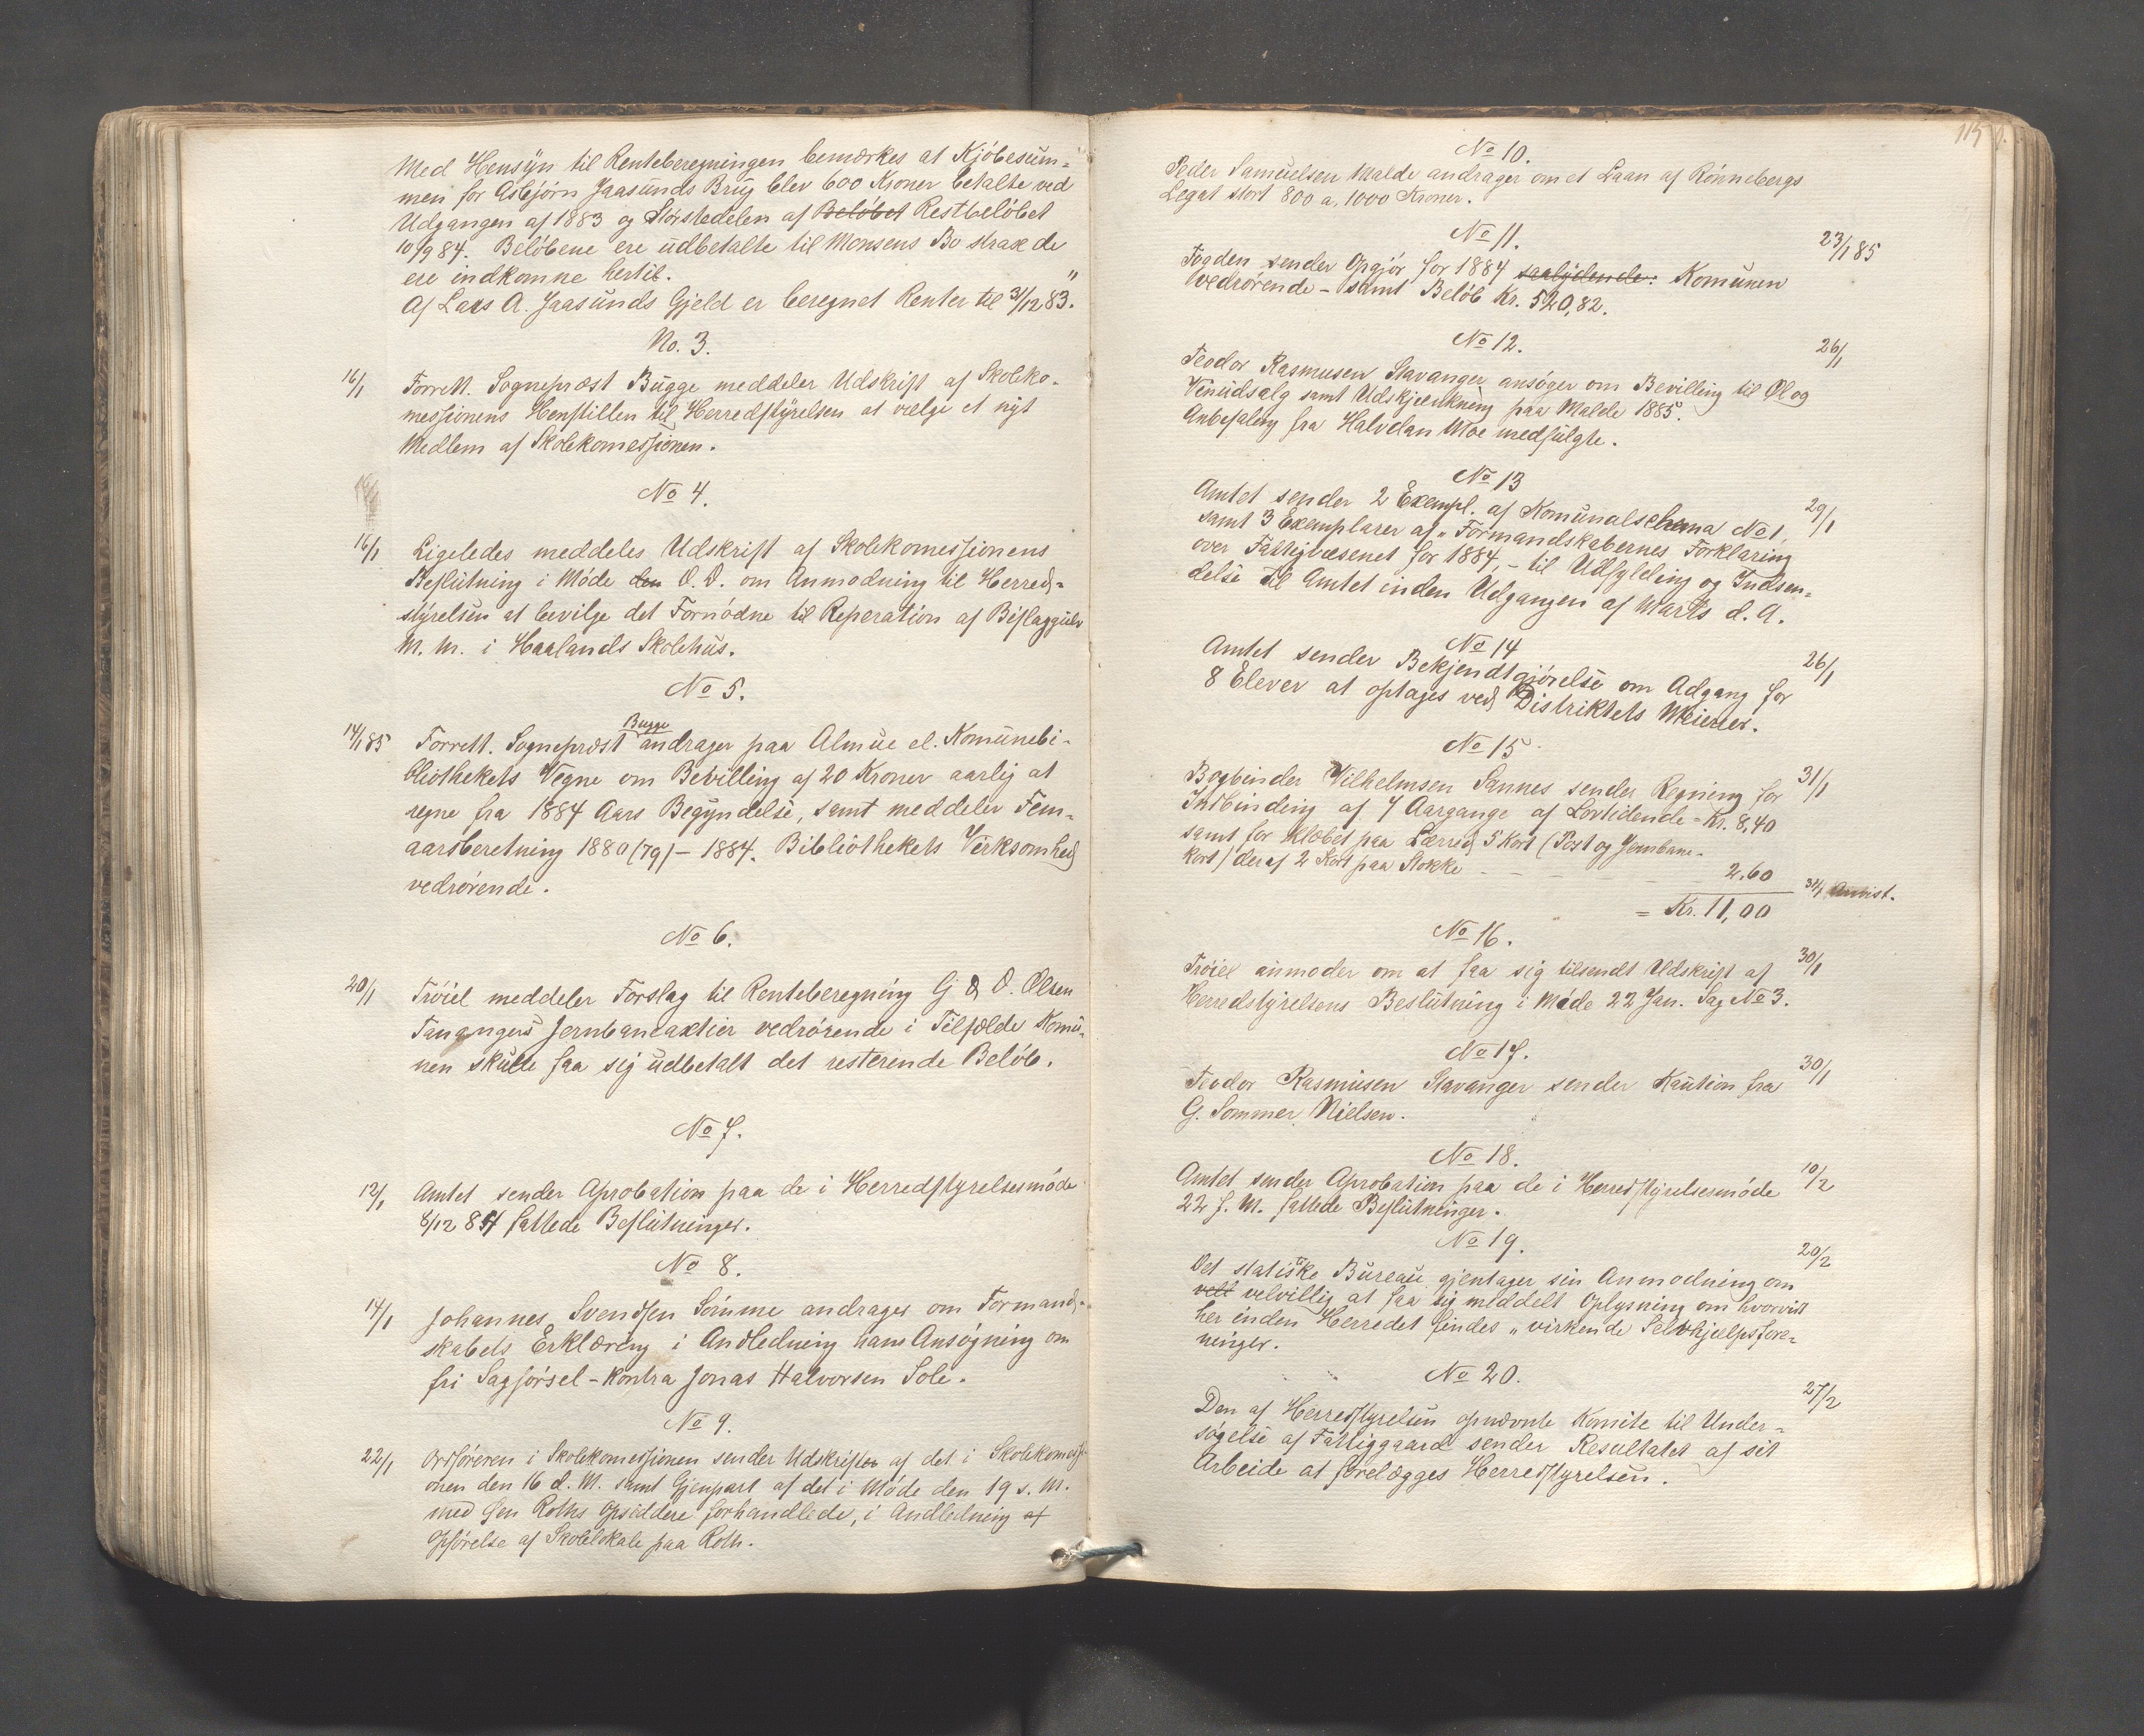 Med Hensyn til Renteberegningen bemærkes at Kjöbesum-
men for Asbjörn Jaasunds Brug blev 600 Kroner betalte ved
Udgangen af 1883 og Störstedelen af Beløbet Restbelöbet
10/9 84. Belöbene ere udbetalte til Monsens Bo strax de
ere indkomne hertil.
Af Lars A. Jaasunds Gjeld er beregnet Renter til 31/12 83."
No. 3.
16/1 Forrett. Sognepræst Bugge meddeler Udskrift af Skoleko-
messionens Henstillen til Herredstyrelsen at vælge et nyt
Medlem af Skolekomessionen.
No 4.
16/1 Ligeledes meddeles Udskrift af Skolekomessionens
Beslutning i Möde den O. D. om Anmodning til Herred-
styrelsen at bevilge det Fornödne til Reperation af Bislaggulv
M. m. i Haalands Skolehus.
No 5.
Bugge
14/1 85 Forrett. Sognepræst andrager paa Almue el. Komunebi-
bliothekets Vegne om Bevilling af 20 Kroner aarlig at
regne fra 1884 Aars Begyndelse, samt meddeler Fem-
aarsberetning 1880 (79) - 1884. Bibliothekets Virksomhed
vedrørende.
No 6.
20/1 Tröiel meddeler Forslag til Renteberegning G & O. Olsen
Tanangers Jernbaneaktier vedrörende i Tilfælde Komu-
nen skulle faa sig udbetalt det resterende Belöb.
No 7.
12/1 Amtet sender Aprobation paa de i Herredstyrelsesmöde
8/12 84 fattede Beslutninger.
No 8.
14/1 Johannes Svendsen Sömme andrager om Formand-
skabets Erklæring i Andledning hans Ansögning om
fri Sagförsel - kontra Jonas Halvorsen Sole.
No 9.
22/1 Ordföreren i Skolekomessionen sender Udskrifter af det i Skolekomessi-
onen den 16 d. M. samt Gjenpart af det i Möde den 19 s. M.
med Roths Opsiddere forhandlede, i Andledning af
Opförelse af Skolelokale paa Roth.
115
No 10.
Peder Samuelsen Malde andrager om et Laan af Rönnebergs
Legat stort 800 a, 1000 Kroner.
No 11. 23/1 85
Fogden sender Opgjör for 1884 saalydende: Komunen
vedrörende - samt Belöb Kr. 520,82.
No 12. 26/1
Teodor Rasmusen Stavanger ansöger om Bevilling til Öl og
Vinudsalg samt Udskjænkning paa Malde 1885.
Anbefaling fra Halvdan Moe medfulgte.
No 13
Amtet sender 2 Exempl. af Komunalschema No 1, 29/1
samt 3 Exemplarer af „Formandskabernes Forklaring
over Fattigvæsenet for 1884, - til Udfylding og Indsen-
delse til Amtet inden Udgangen af Marts d. A.
No 14 26/1
Amtet sender Bekjendtgjörelse om Adgang for
8 Elever at optages ved Distriktets Meierier.
No 15
Bogbinder Vilhelmsen Sannes sender Regning for 31/1
Indbinding af 7 Aargange af Lovtidende - Kr. 8,40
samt for klæbet paa Lærred 5 Kort (Post og Jernbane-
kort) deraf 2 Kort paa Stokke - - - 2.60
= Kr. 11,00 Anvist.
No 16.
Tröiel anmoder om at faa sig tilsendt Udskrift af 30/1
Herredstyrelsens Beslutning i Möde 22 Jan. Sag No 3.
No 17.
Teodor Rasmusen Stavanger sender Kaution fra 30/1
G. Sommer Nielsen.
No 18.
Amtet sender Aprobation paa de i Herredstyrelsesmöde 10/2
22 f. M. fattede Beslutninger.
No 19. 20/2
Det statiske Bureau gjentager sin Anmodning om
velt velvillig at faa sig meddelt Oplysning om hvorvidt
her inden Herredet findes „virkende Selvhjælpsfore-
ninger.
No 20. 27/2
Den af Herredstyrelsen opnævnte Komite til Under-
sögelse af Fattiggaard sender Resultatet af sit
Arbeide at forelægges Herredstyrelsen.